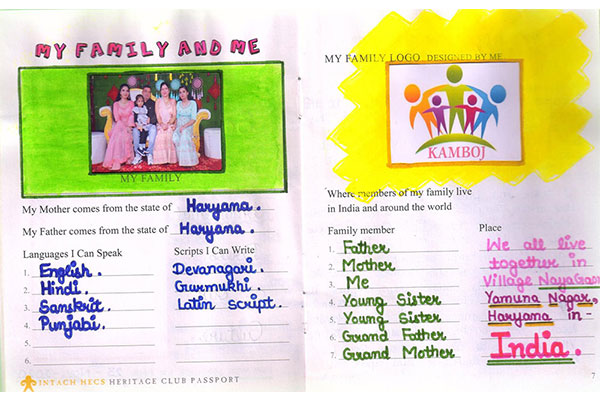 MY FAMILY AND ME
MY FAMILY
My Mother comes from the state of Haryana.
My Father comes from the state of Haryana.
Languages I Can Speak
1. English.
2. Hindi.
3. Sanskrit.
4. Punjabi.
5.
6.
Scripts I Can Write
Devanagari.
Gurmukhi.
Latin script.
INTACH HECS HERITAGE CLUB PASSPORT
MY FAMILY LOGO DESIGNED BY ME
KAMBOJ
Where members of my family live
in India and around the world
Family member
1. Father
2. Mother
3. Me
4. Young Sister
5. Young Sister
6. Grand Father
7. Grand Mother
Place
We all live
together in
Village
Yamuna Nagar,
Haryana in -
India.
7